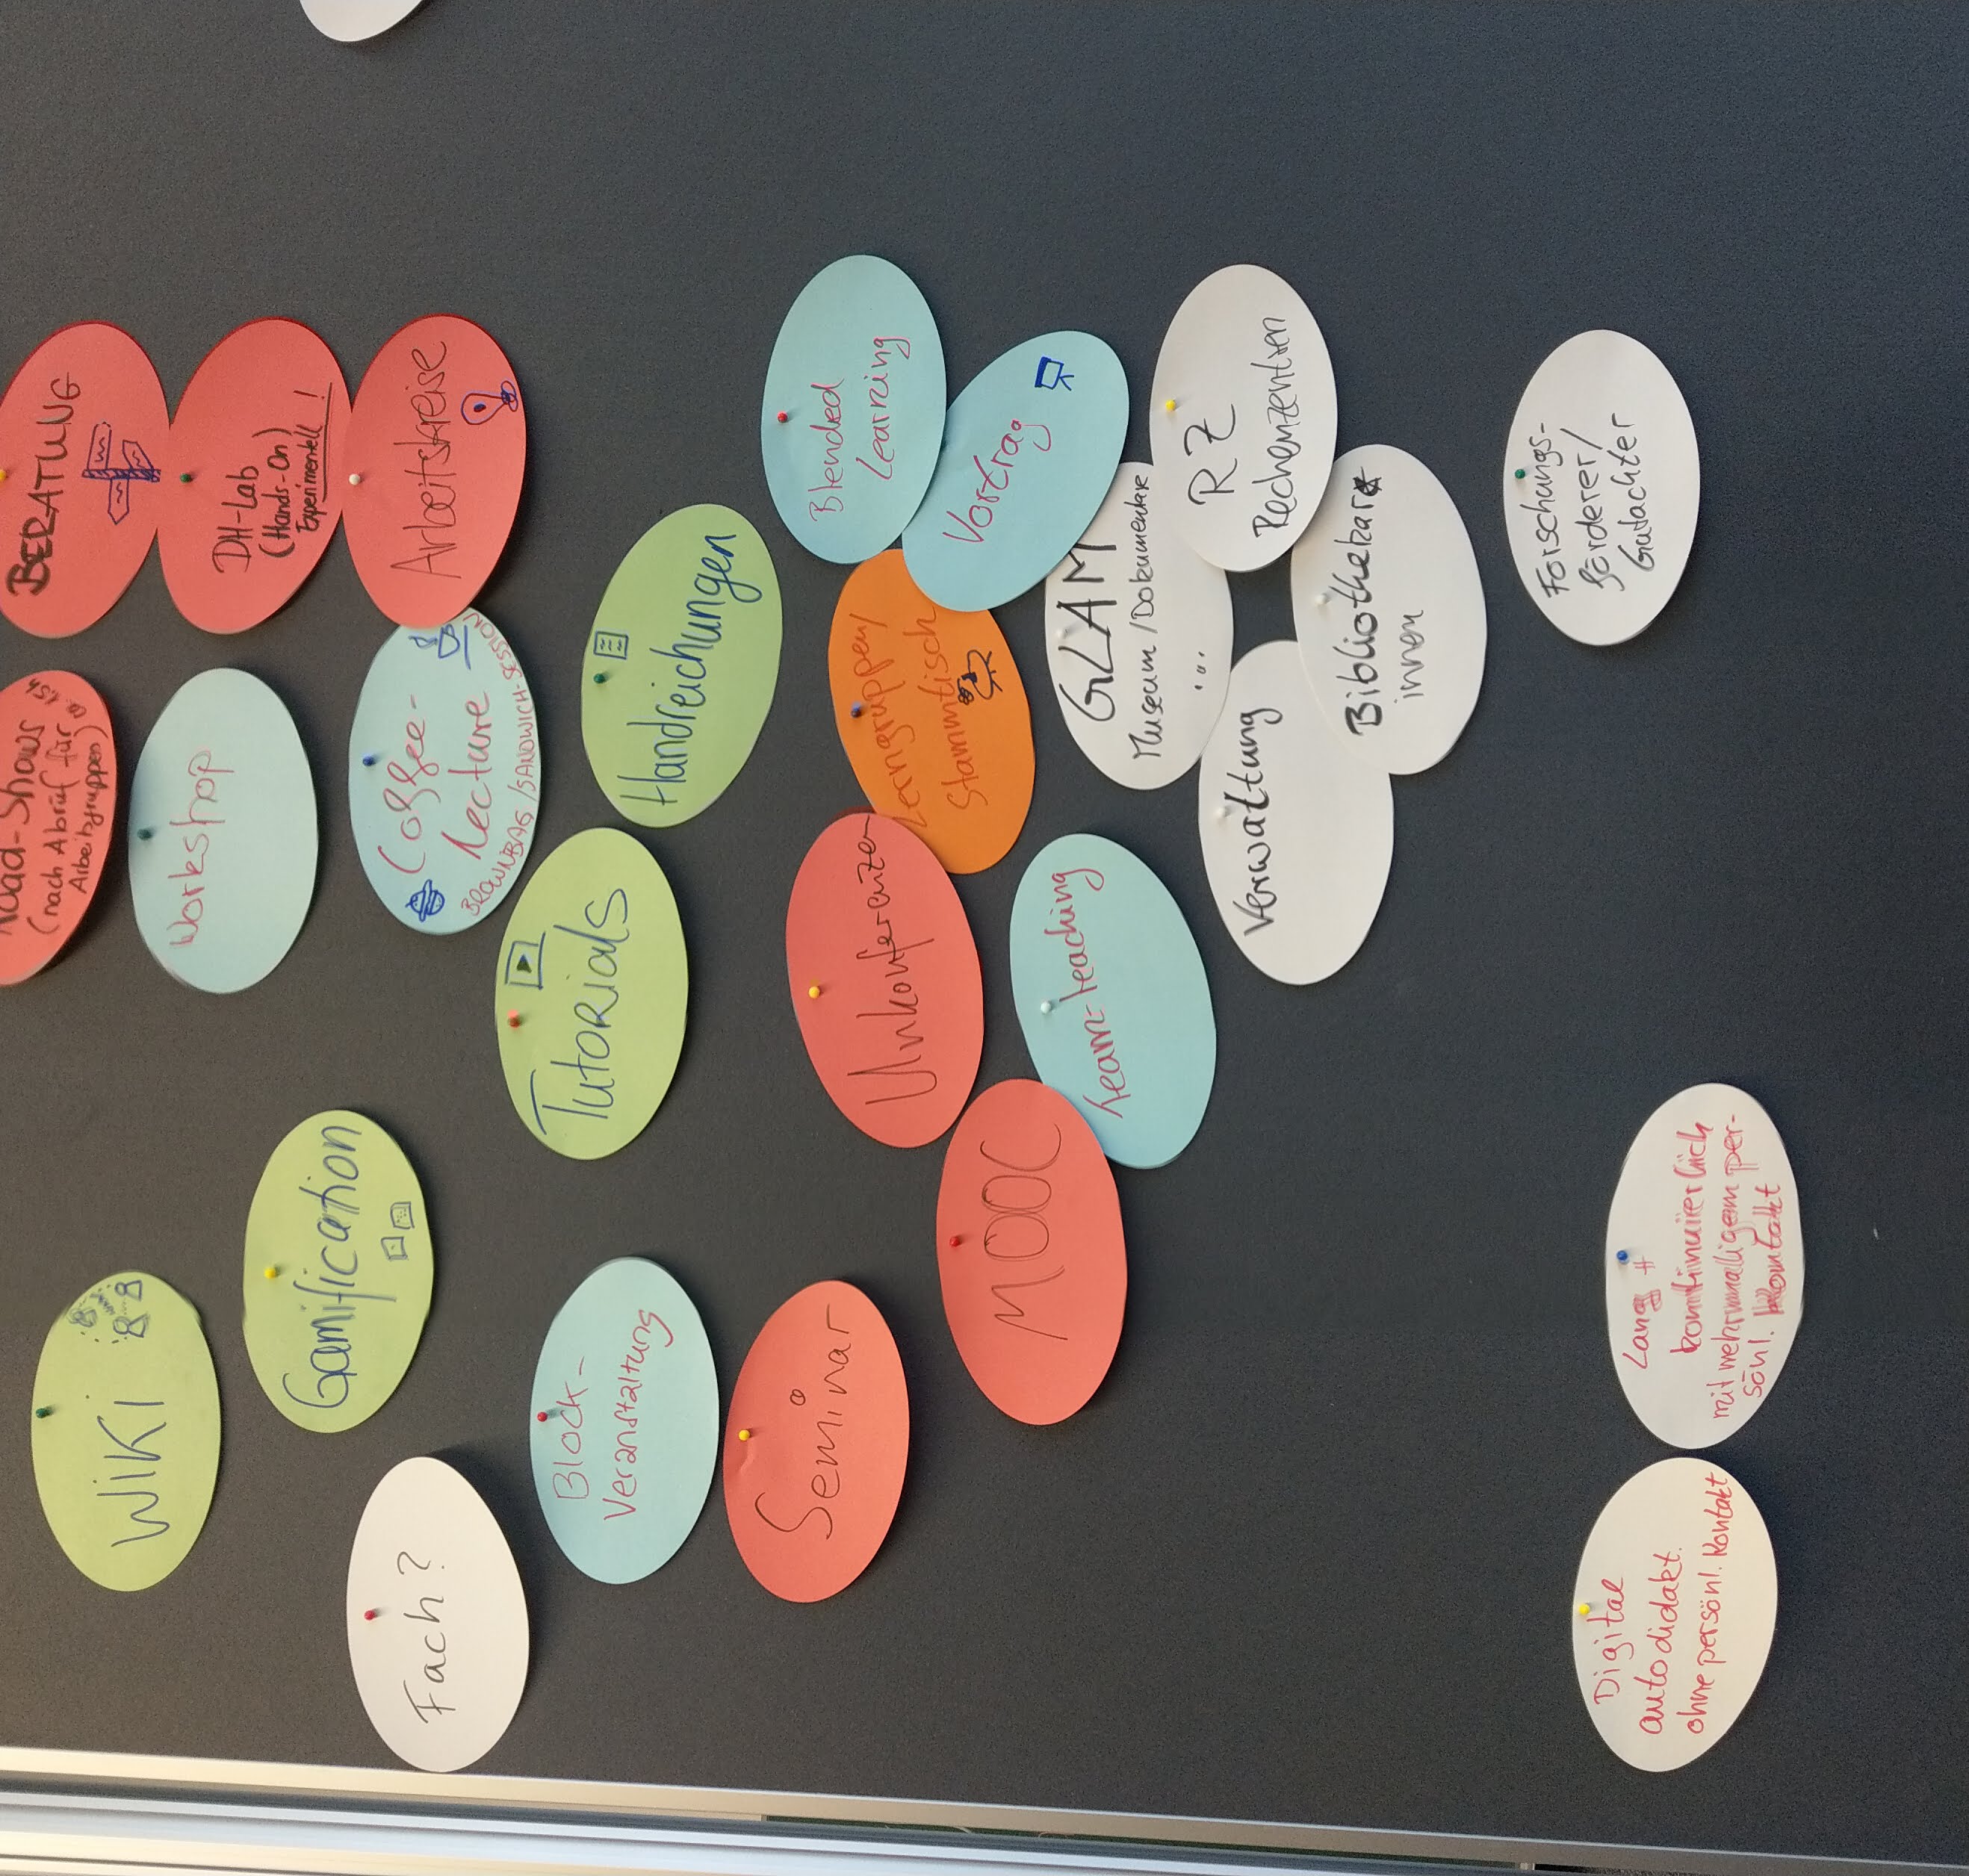 Road-Shows
(nach Abruf für
Arbeitsgruppen)
ca. 1.5h
BERATUNG
WIKI
Workshop
DH-Lab
(Hands-On)
Experimentell !
Gamification
Fach?
Coffee-
Lecture
BROWNBAG /SANDWICH-SESSION
Arbeitskreise
Block-
Veranstaltung
Tutorials
Handreichungen
Seminar
Unkonferenzen
Lerngruppen/
Stammtisch
Blended
Learning
Vortrag
MOOC
Team-teaching
GLAM
Museum /Dokumentare
...
Verwaltung
RZ
Rechenzentren
Bibliothekar*
innen
Forschungs-
förderer/
Gutachter
Digital
autodidakt.
ohne persönl. Kontakt
Lang +
kontinuierlich
mit mehrmaligem per-
sönl. Kontakt